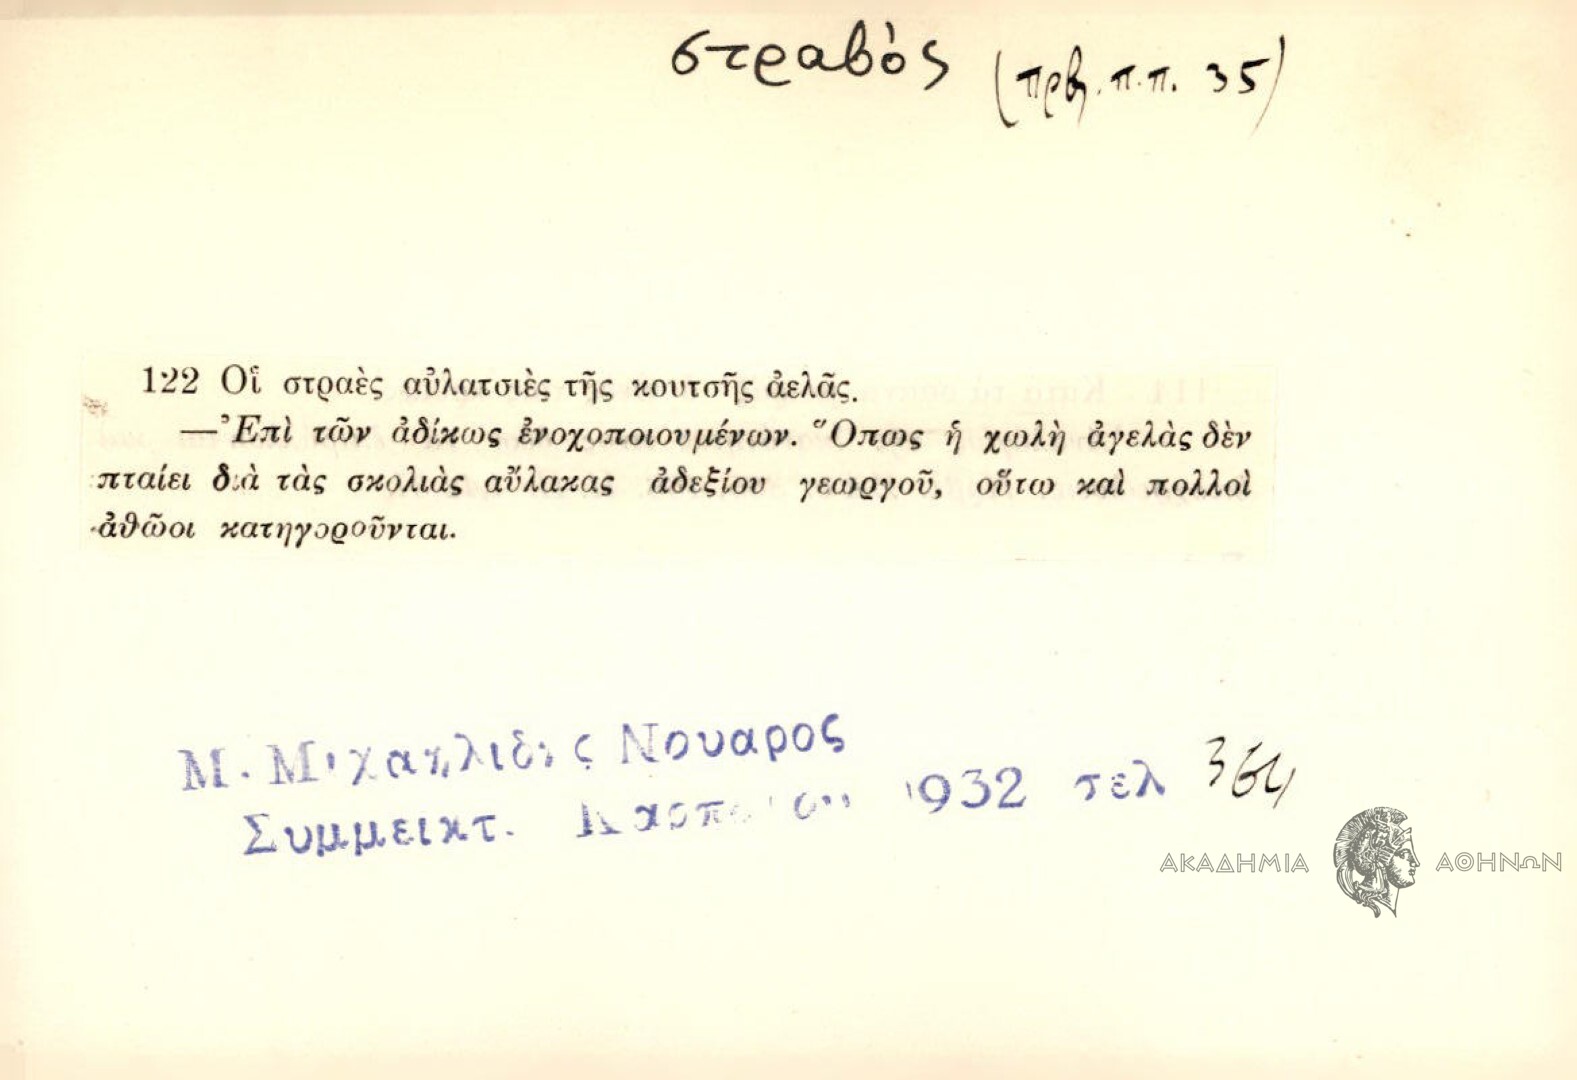 στραβὸς (πρβ. π.π. 35)
122 Οἱ στραὲς αὐλατσιὲς τῆς κουτσῆς ἀελᾶς.
—Ἐπὶ τῶν ἀδίκως ἐνοχοποιουμένων. Ὅπως ἡ χωλὴ ἀγελὰς δὲν
πταίει διὰ τὰς σκολιὰς αὔλακας ἀδεξίου γεωργοῦ, οὕτω καὶ πολλοὶ
ἀθῶοι κατηγοροῦνται.
Μ. Μιχαηλιδης Νουαρος
Συμμεικτ. 1932 σελ 364
ΑΚΑΔΗΜΙΑ ΑΘΗΝΩΝ